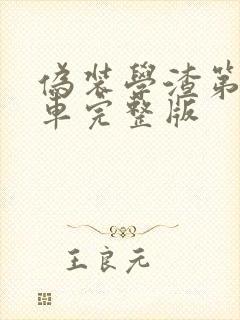 偽裝學渣第
車完整版
王良元